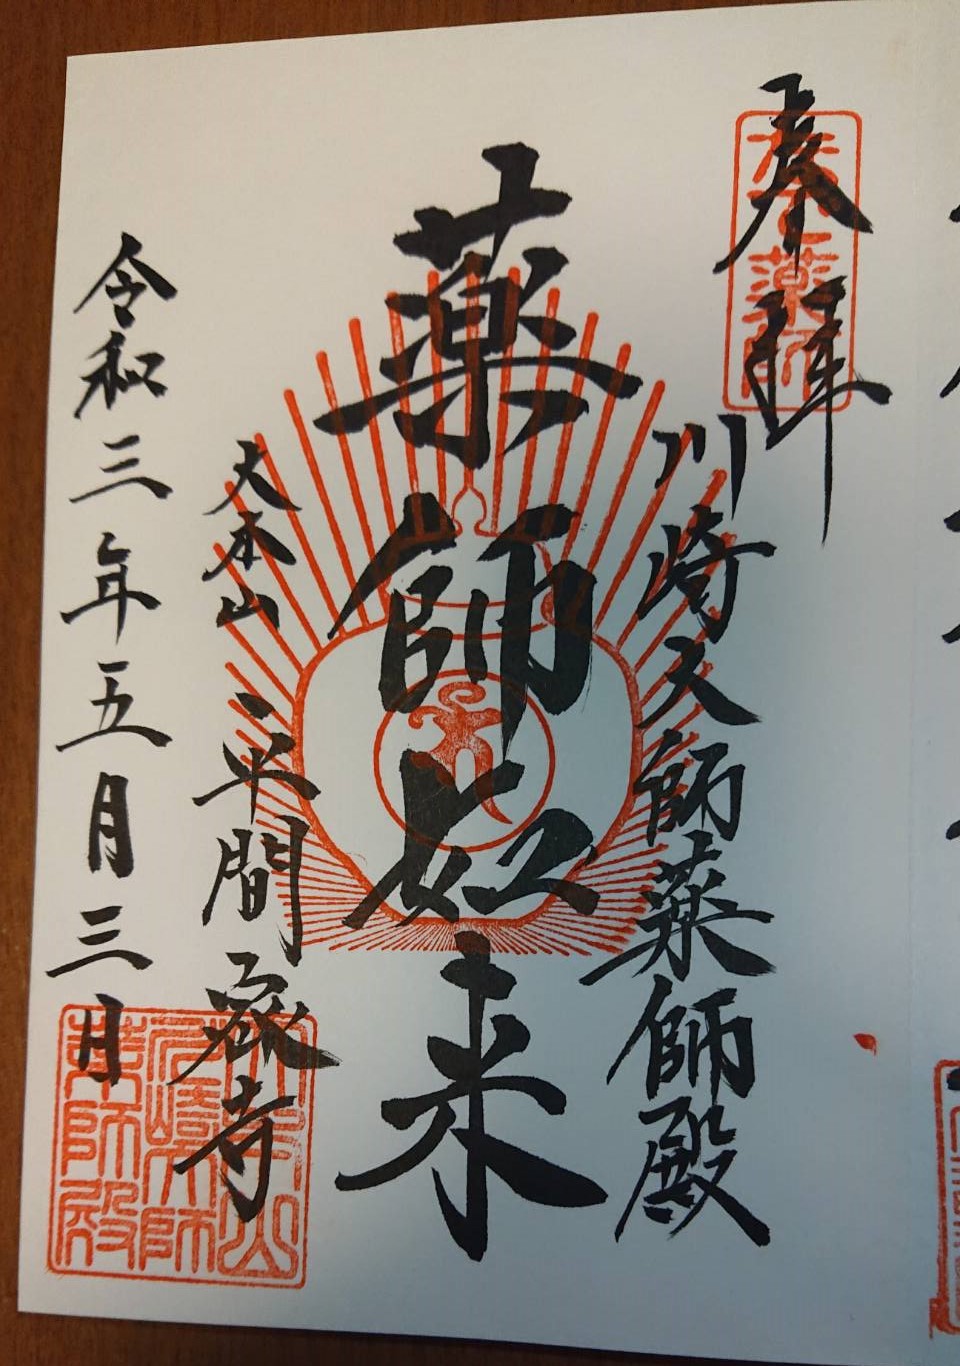 奉拝
川崎大師薬師殿
薬師如来
大本山 平間寺
令和三年五月三日
大本山
川崎大師
薬師殿